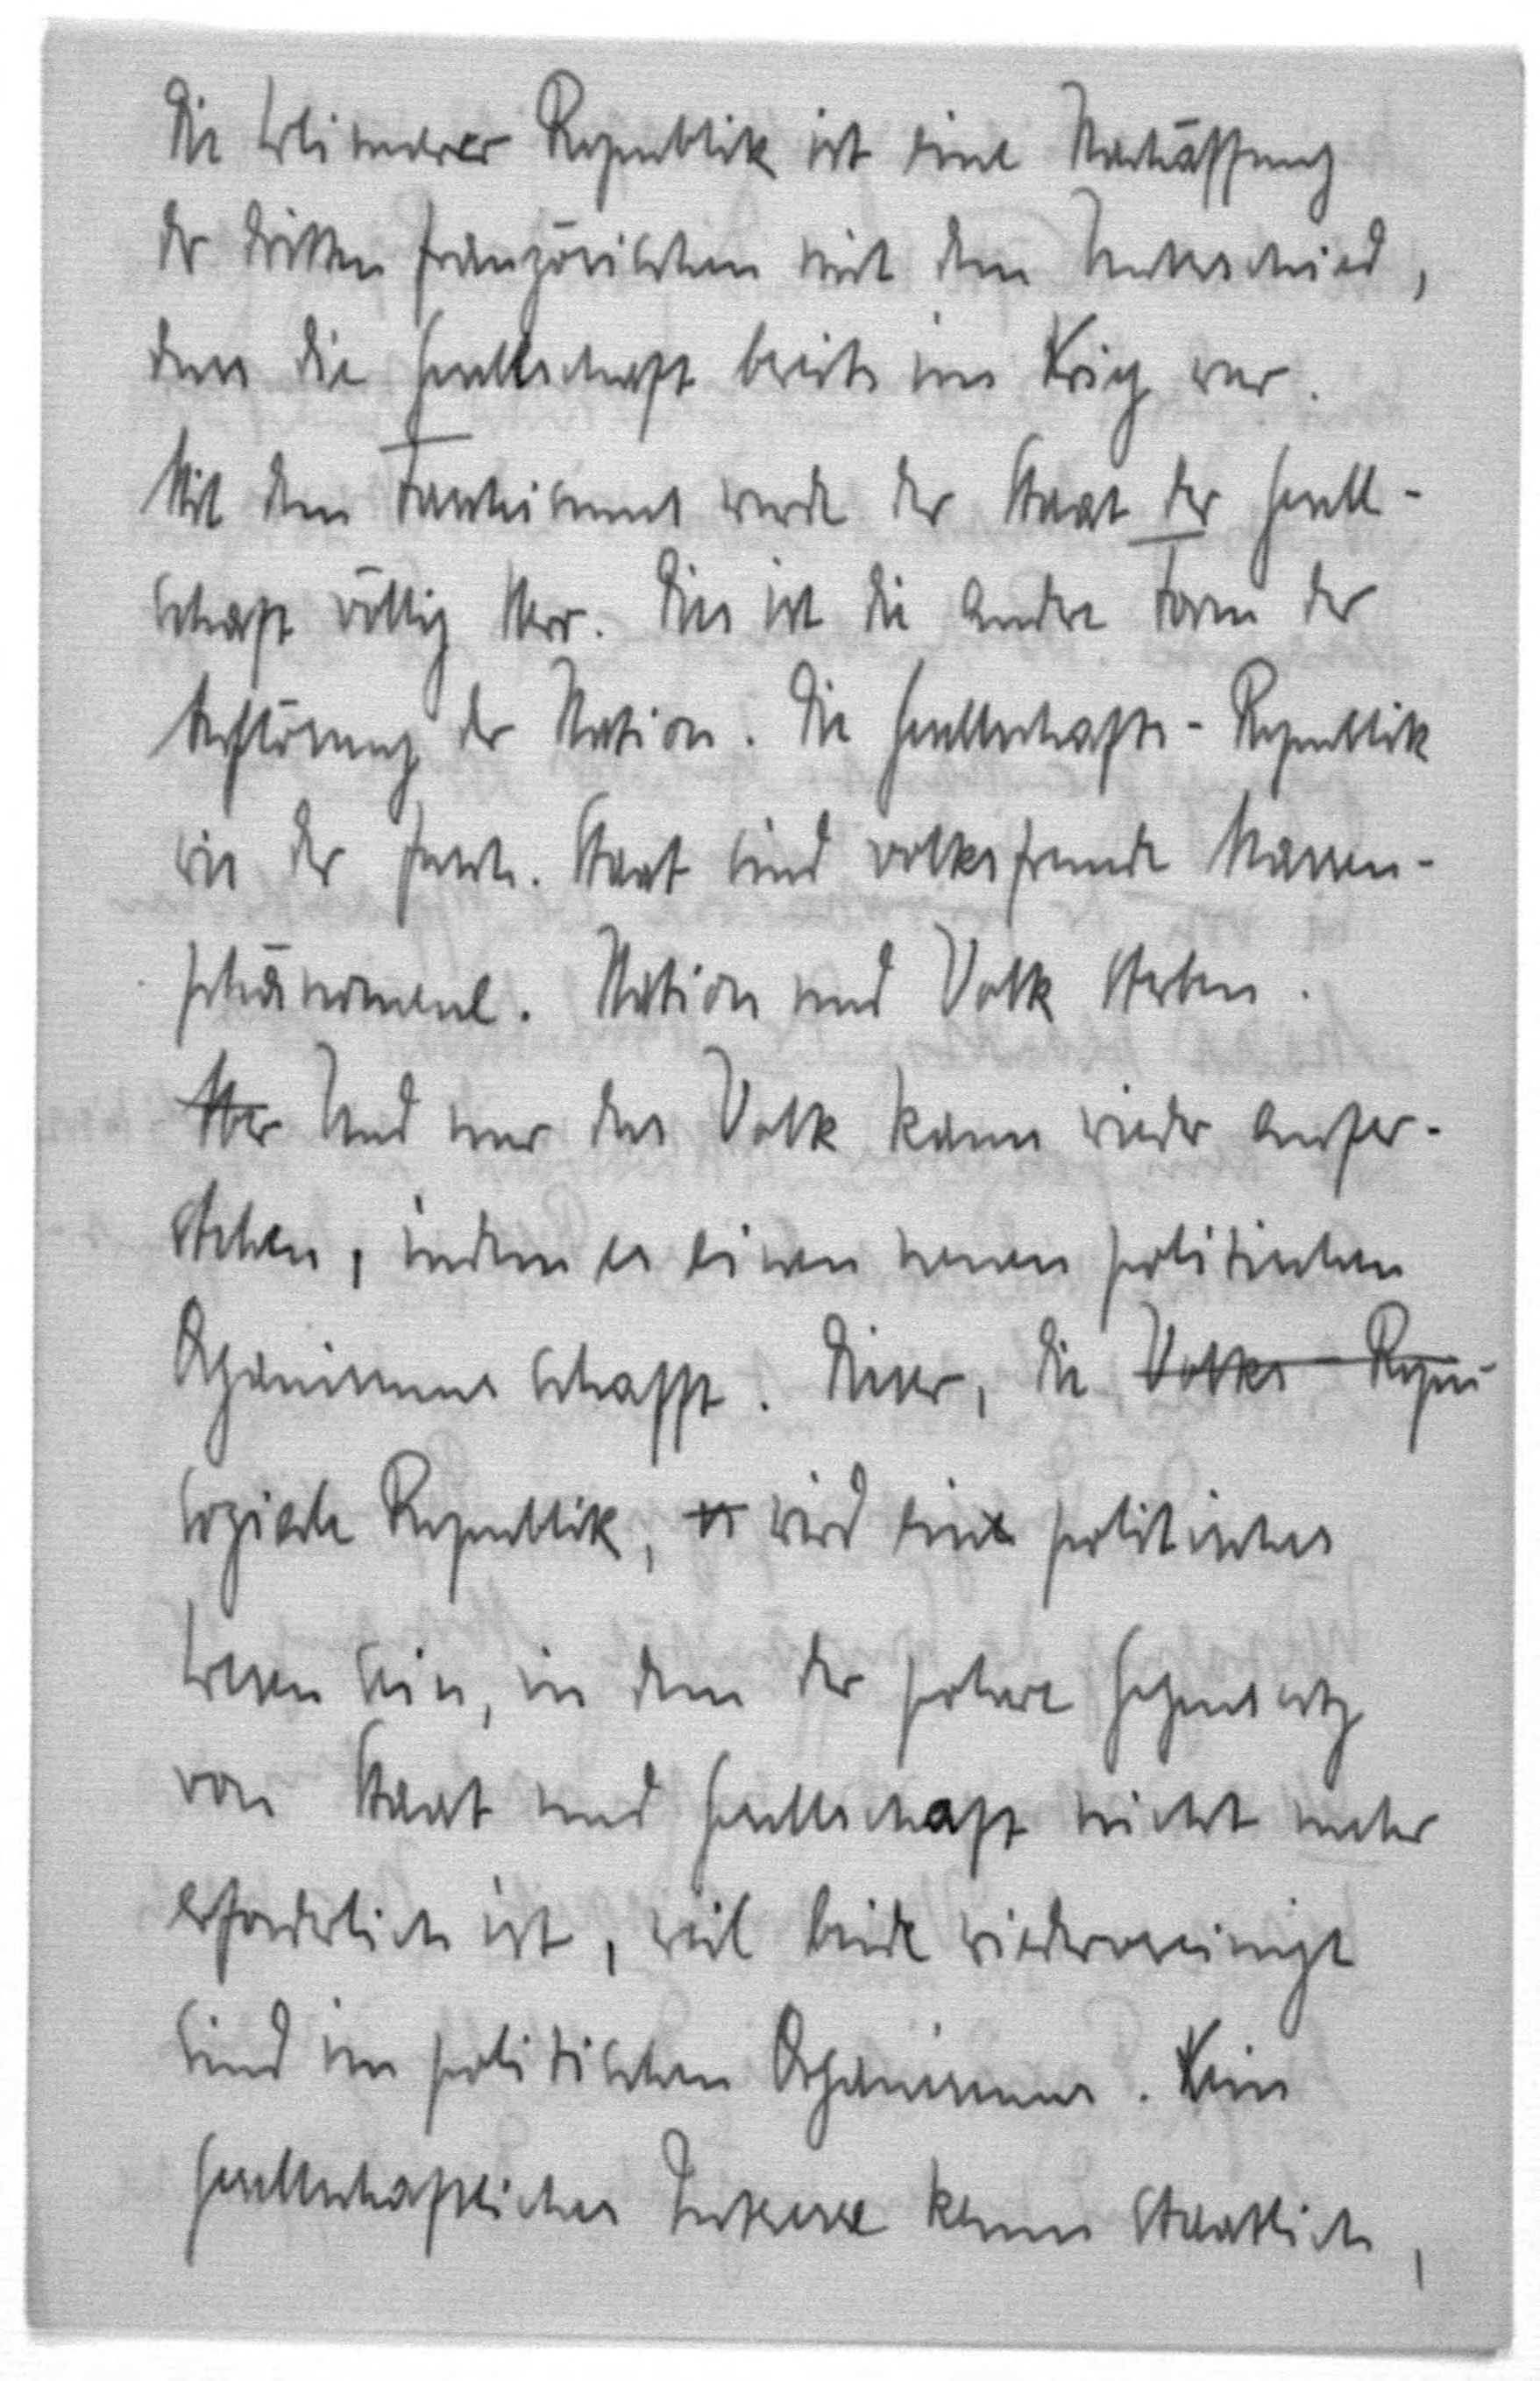 Die Weimarer Republik ist eine Nachäffung
der dritten französischen mit dem Unterschied,
dass die Gesellschaft bereits im Krieg war.
Mit dem Faschismus wurde der Staat der Gesell-
schaft völlig Herr. Dies ist die andere Form der
Zerstörung der Nation. Die Gesellschafts-Republik
wie der fasch. Staat sind volksfremde Massen-
phänomene. Nation und Volk sterben.
Und nur das Volk kann wieder aufer-
stehen, indem es einen neuen politischen
Organismus schafft. Dieser, die Volks-Repu
soziale Republik, wird ein politisches
Wesen sein, in dem der polare Gegensatz
von Staat und Gesellschaft nicht mehr
erforderlich ist, weil beide wiedervereinigt
sind im politischen Organismus. Kein
gesellschaftliches Interesse kann staatlich,